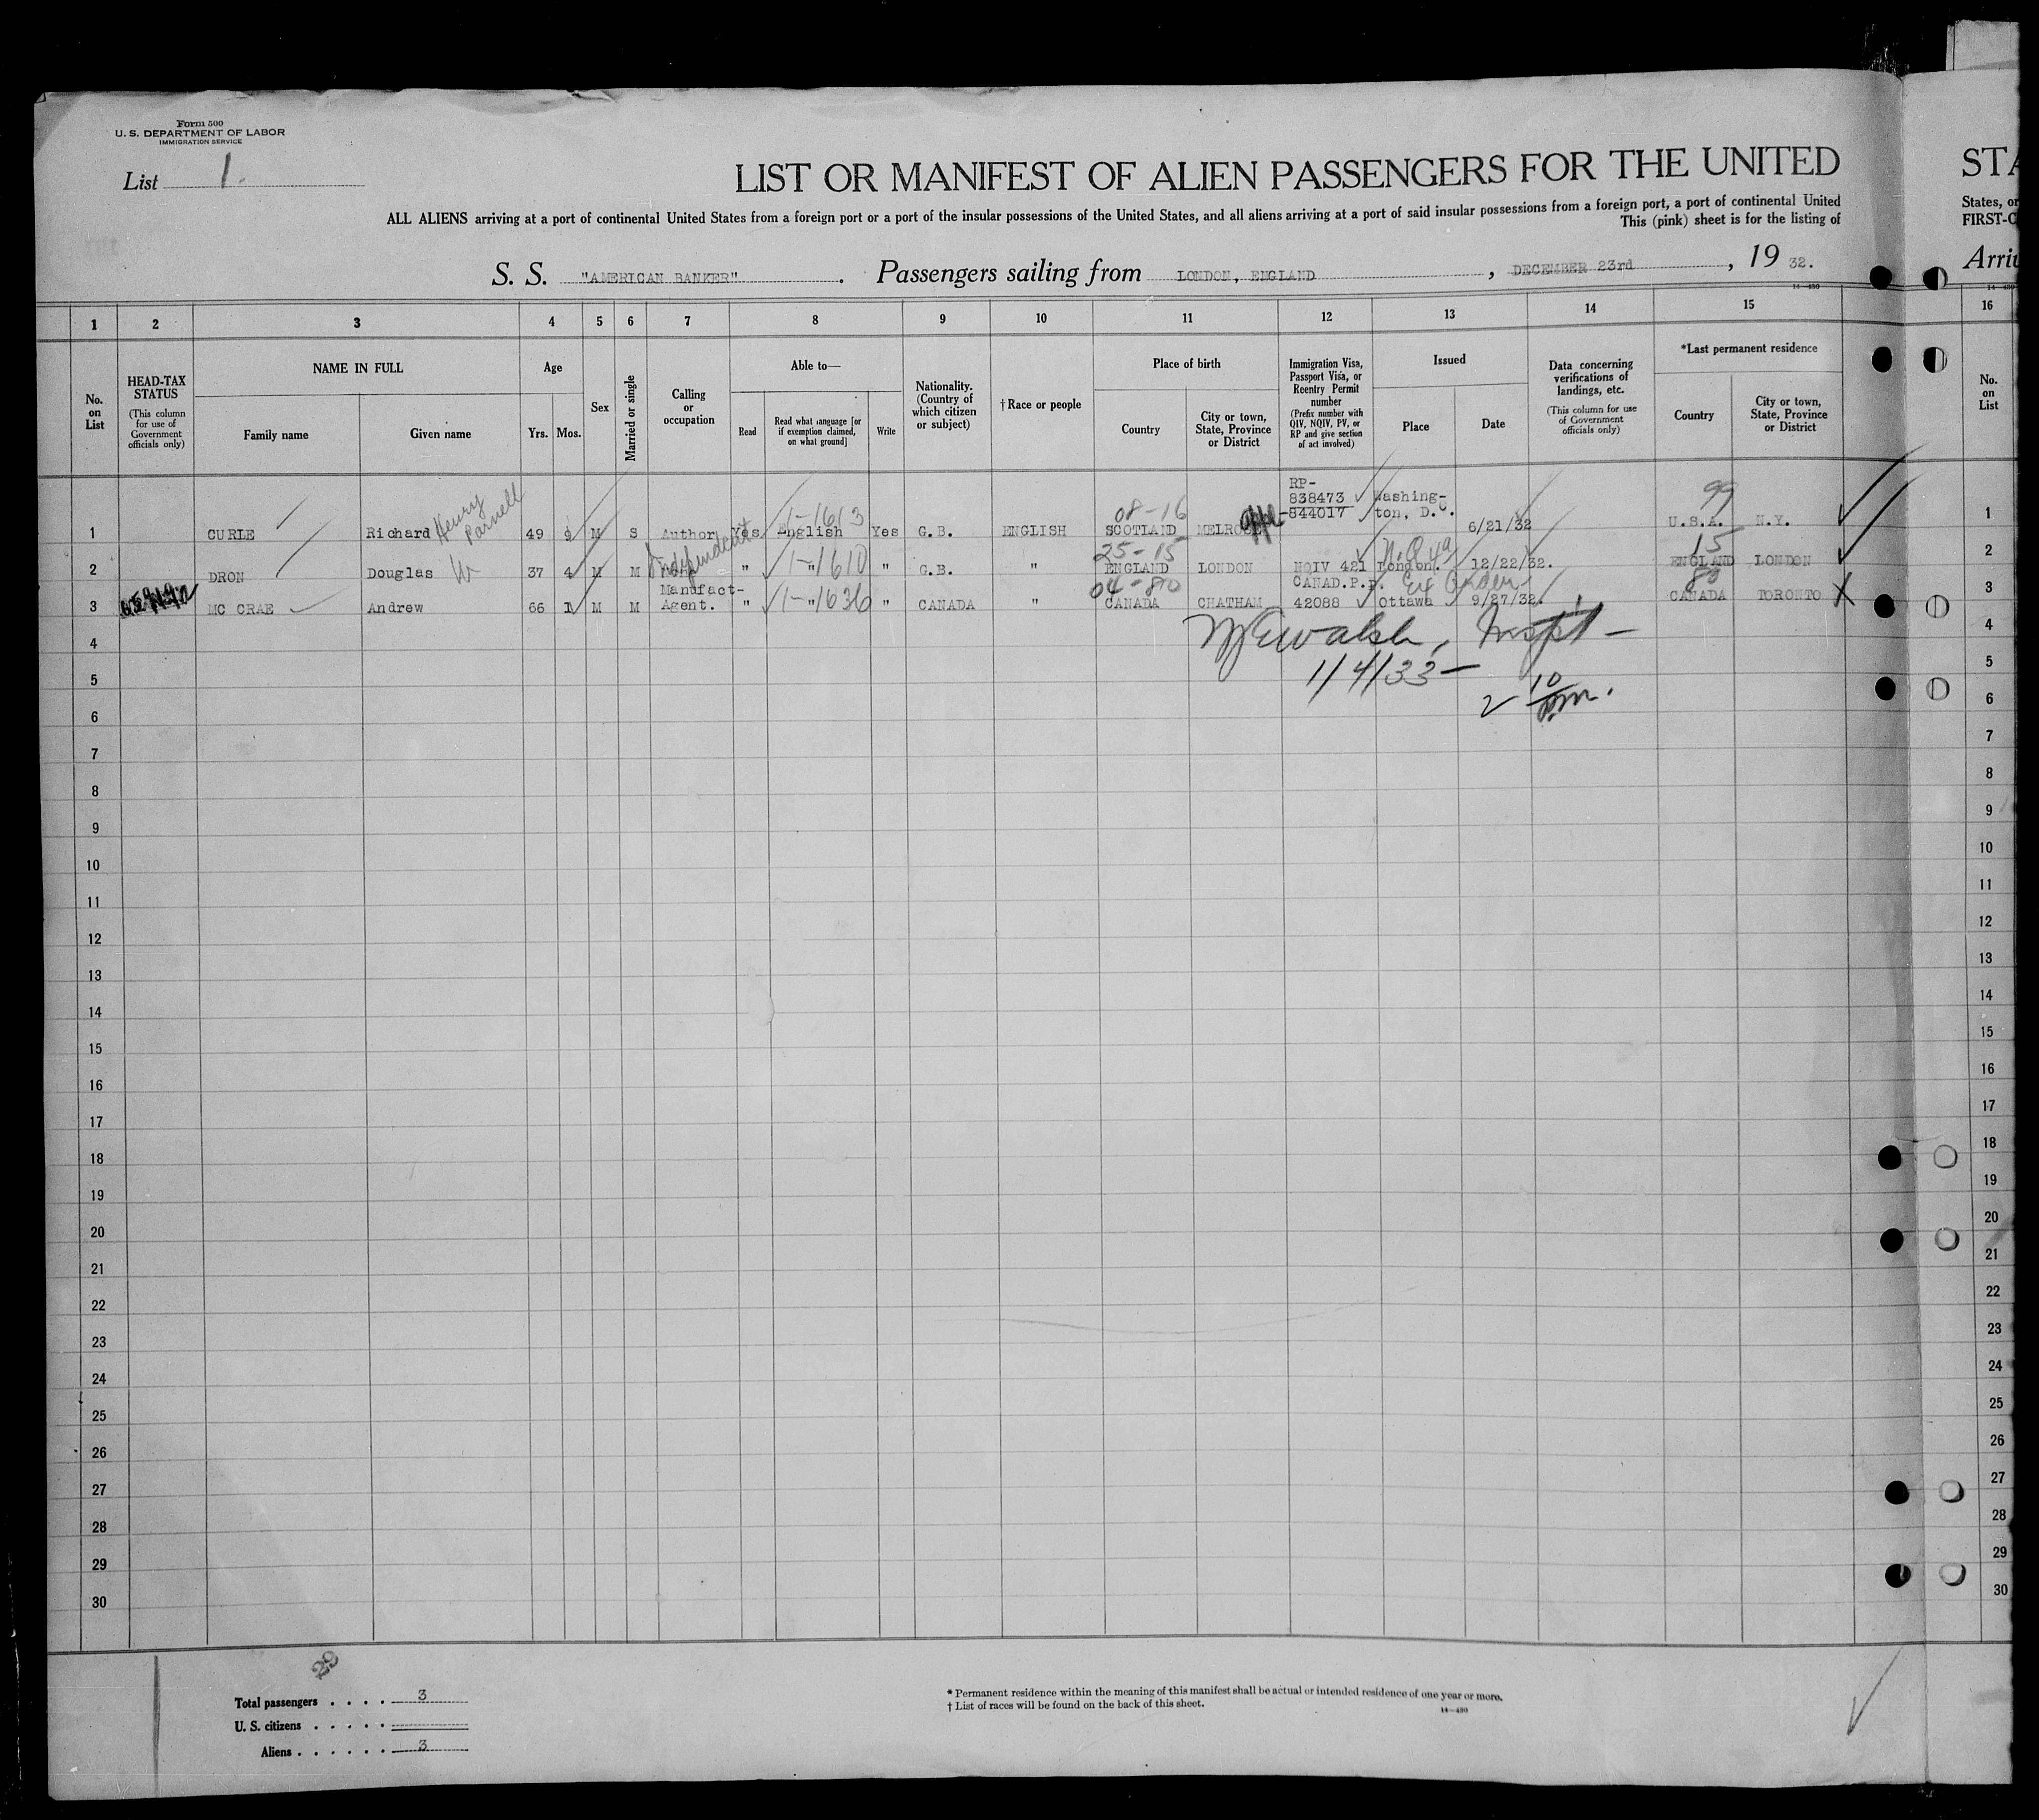 Form 500
U. S. DEPARTMENT OF LABOR
IMMIGRATION SERVICE
List 1.
LIST OR MANIFEST OF ALIEN PASSENGERS FOR THE UNITED
STA
ALL ALIENS arriving at a port of continental United States from a foreign port or a port of the insular possessions of the United States, and all aliens arriving at a port of said insular possessions from a foreign port, a port of continental United
States, or
This (pink) sheet is for the listing of
FIRST-C
S. S. "AMERICAN BANKER". Passengers sailing from LONDON, ENGLAND, DECEMBER 23rd, 19 32.
Arri
14—430
14—430
1 2 3 4 5 6 7 8 9 10 11 12 13 14 15 16
No. on List
HEAD-TAX STATUS
(This column for use of Government officials only)
NAME IN FULL
Family name
Given name
Age
Yrs.
Mos.
Sex
Married or single
Calling or occupation
Able to—
Read
Read what language [or if exemption claimed, on what ground]
Write
Nationality. (Country of which citizen or subject)
†Race or people
Place of birth
Country
City or town, State, Province or District
Immigration Visa, Passport Visa, or Reentry Permit number
(Prefix number with QIV, NQIV, PV, or RP and give section of act involved)
Issued
Place
Date
Data concerning verifications of landings, etc.
(This column for use of Government officials only)
*Last permanent residence
Country
City or town, State, Province or District
No. on List
1 CURLE Richard Henry Parnell 49 9 M S Author Yes English 1-1613 Yes G.B. ENGLISH 08-16 SCOTLAND MELROSE RP-838473 844017 Washington, D.C. 6/21/32 99 U.S.A. N.Y. 1
2 DRON Douglas W 37 4 M M Independent " " 1-1610 " G.B. " 25-15 ENGLAND LONDON NQIV 421 London. 12/22/32. 15 ENGLAND LONDON 2
3 MC CRAE Andrew 66 1 M M Manufact-Agent. " " 1-1636 " CANADA " 04-80 CANADA CHATHAM CANAD.P.P. 42088 Ottawa Ex Order 9/27/32. 80 CANADA TORONTO X 3
4 Walsh, Inspt - 4
5 1/4/33 - 5
6 2 10 pm. 6
7 7
8 8
9 9
10 10
11 11
12 12
13 13
14 14
15 15
16 16
17 17
18 18
19 19
20 20
21 21
22 22
23 23
24 24
25 25
26 26
27 27
28 28
29 29
30 30
Total passengers . . . . 3
U. S. citizens . . . . .
Aliens . . . . . . 3
* Permanent residence within the meaning of this manifest shall be actual or intended residence of one year or more.
† List of races will be found on the back of this sheet.
14—430